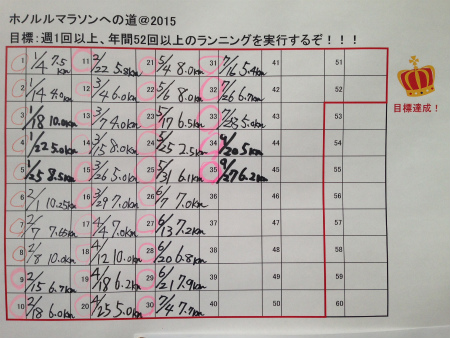 ホノルルマラソンへの道@2015
目標：週1回以上、年間52回以上のランニングを実行するぞ！！！
1 1/4 7.5km 11 2/22 5.8km 21 5/4 8.0km 31 7/16 5.4km 41 51
2 1/14 12 3/4 6.0km 22 5/6 8.0km 32 7/26 6.7km 42 52
目標達成！
3 1/18 10.0km 13 3/7 4.0km 23 5/17 6.5km 33 5.0km 43 53
4 1/22 5.0km 14 3/15 8.0km 24 5/25 2.5km 34 9/20 5km 44 54
5 1/25 8.5km 15 3/26 5.0km 25 5/31 6.1km 35 9/27 6.2km 45 55
6 2/1 10.25km 16 3/29 7.0km 26 6/7 7.0km 36 46 56
7 2/7 7.65km 17 4/4 7.0km 27 6/13 7.2km 37 47 57
8 2/8 10.0km 18 4/12 10.0km 28 6/20 6.8km 38 48 58
9 2/15 6.7km 19 4/18 6.2km 29 6/21 7.9km 39 49 59
10 2/18 6.0km 20 4/25 5.0km 30 7/4 7.7km 40 50 60